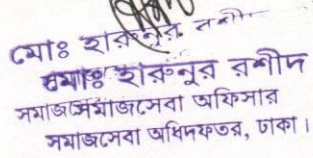 মোঃ হারুনুর রশীদ
মোঃ হারুনুর রশীদ
সমাজসমাজসেবা অফিসার
সমাজসেবা অধিদফতর, ঢাকা।